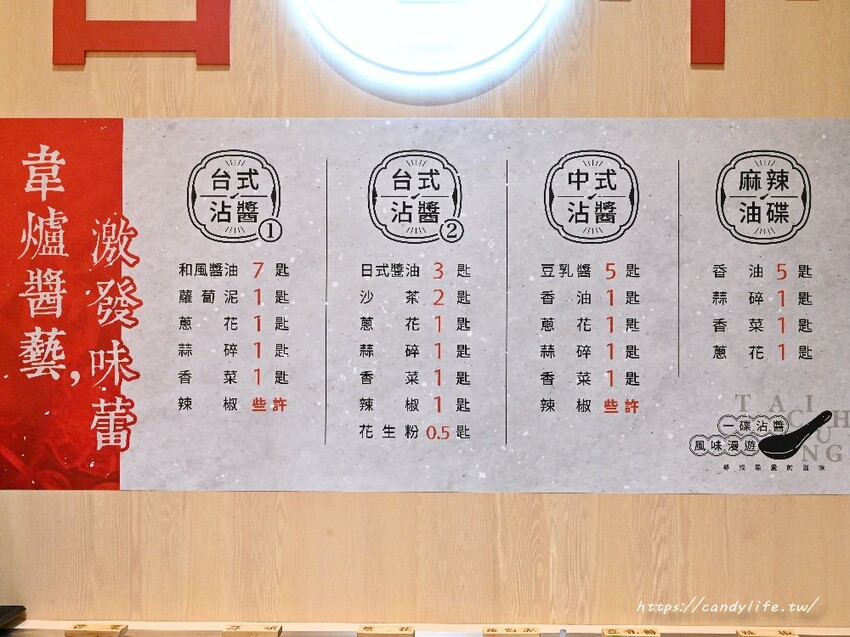 韋爐醬藝,
激發味蕾
台式
沾醬
①
和風醬油 7 匙
蘿蔔泥 1 匙
蔥花 1 匙
蒜碎 1 匙
香菜 1 匙
辣椒 些許
台式
沾醬
②
日式醬油 3 匙
沙茶 2 匙
蔥花 1 匙
蒜碎 1 匙
香菜 1 匙
辣椒 1 匙
花生粉 0.5 匙
中式
沾醬
豆乳醬 5 匙
香油 1 匙
蔥花 1 匙
蒜碎 1 匙
香菜 1 匙
辣椒 些許
麻辣
油碟
香油 5 匙
蒜碎 1 匙
香菜 1 匙
蔥花 1 匙
TAICHUNG
一碟沾醬
風味漫遊
尋找最愛的滋味
https://candylife.tw/